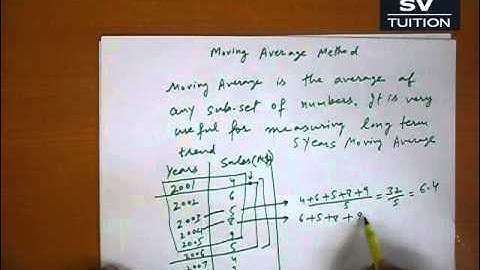 SV
TUITION
Moving Average Method
Moving Average is the average of
any subset of numbers. It is very
useful for measuring long term
trend 5 years Moving Average
Years Sales
2001 4
2002 6
2003 5
2004 8
2005 9
2006 5
2007 4
4+6+5+8+9 / 5 = 32 / 5 = 6.4
6+5+8+9